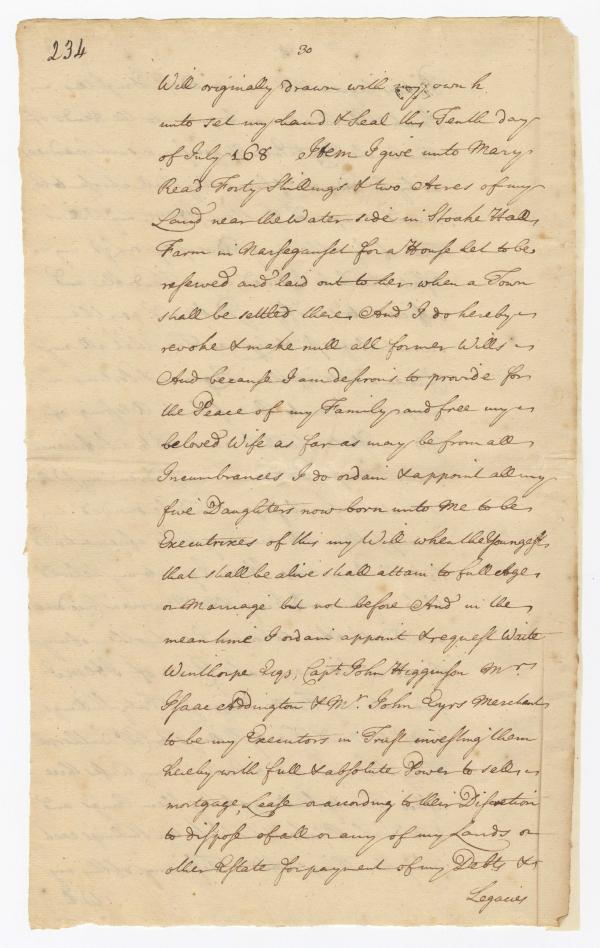 234
30
Will originally drawn with my own h.
unto set my hand & Seal this Tenth day
of July 168 Item I give unto Mary
Read Forty Shillings & two Acres of my
Land near the Water side in Stoake Hall
Farm in Narseganset for a House Let to be
reserved and laid out to her when a Town
shall be settled there. And I do hereby
revoke & make null all former Wills
And because I am desirous to provide for
the Peace of my Family and free my
beloved Wife as far as may be from all
Incumbrances I do ordain & appoint all my
five Daughters now born unto Me to be
Executrixes of this my Will when the Youngest
that shall be alive shall attain to full Age
or Marriage but not before And in the
mean time I ordain appoint & request Waite
Winthorpe Esqr, Capt. John Higginson Mr.
Isaac Addington & Mr. John Eyrs Merchant
to be my Executors in Trust investing them
hereby with full & absolute Power to sell
mortgage, Lease or according to their Discretion
to dispose of all or any of my Lands or
other Estate for payment of my Debts &
Legacies